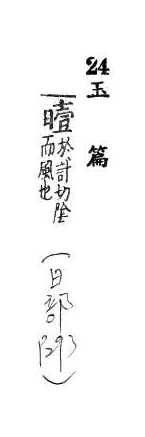 24
玉篇
曀於計切陰
而風也
(日部293)